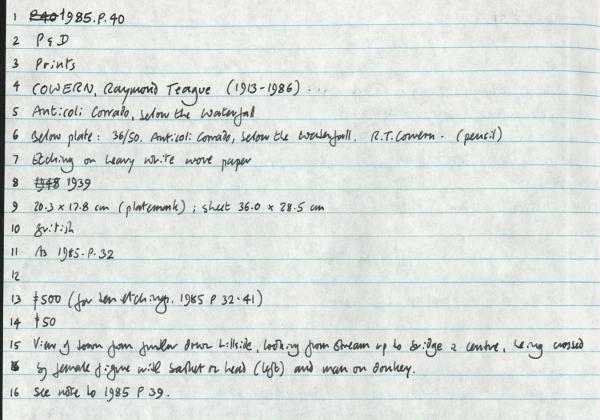 1 P40 1985.P.40
2 P & D
3 Prints
4 COWERN, Raymond Teague (1913-1986) ...
5 Anticoli Corrado, below the Waterfall
6 Below plate: 36/50. Anticoli Corrado, below the Waterfall. R.T. Cowern - (pencil)
7 Etching on heavy white wove paper
8 1948 1939
9 20.3 x 17.8 cm (platemark) ; sheet 36.0 x 28.5 cm
10 British
11 As 1985.P.32
12
13 $500 (for ten etchings. 1985 P 32-41)
14 $50
15 View of town from further down hillside, looking from stream up to bridge in centre, being crossed
by female figure with basket on head (left) and man on donkey.
16 See note to 1985 P 39.